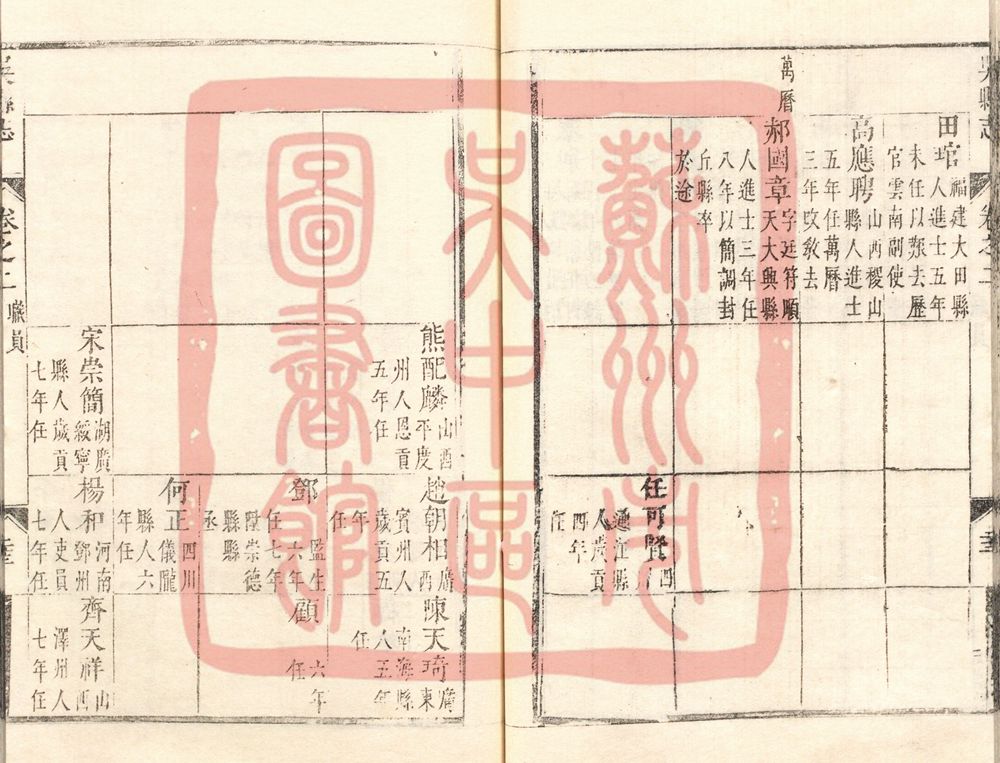 吳縣志
卷之二
田琯福建大田縣
人進士五年
未任以艱去歷
官雲南副使
高應聘山西稷山
縣人進士
五年任萬曆
三年改教去
萬曆
郝國章字廷符順
天大興縣
人進士三年任
八年以簡調封
丘縣卒
於途
任可賢四川
通江縣
人歲貢
四年
任
熊配麟山西
平度
州人恩貢
五年任
趙朝相廣西
賓州人
歲貢五
年任
陳天琦廣東
南海縣
人五年
任
鄧監生
六年
任七年
陞崇德
縣縣
丞
顧六年
任
何正四川
儀隴
縣人六
年任
宋崇簡湖廣
綏寧
縣人歲貢
七年任
楊和河南
鄧州
人吏員
七年任
齊天祥山西
澤州人
七年任
吳縣志
卷之二
職員
蘇州市
吳中區
圖書館